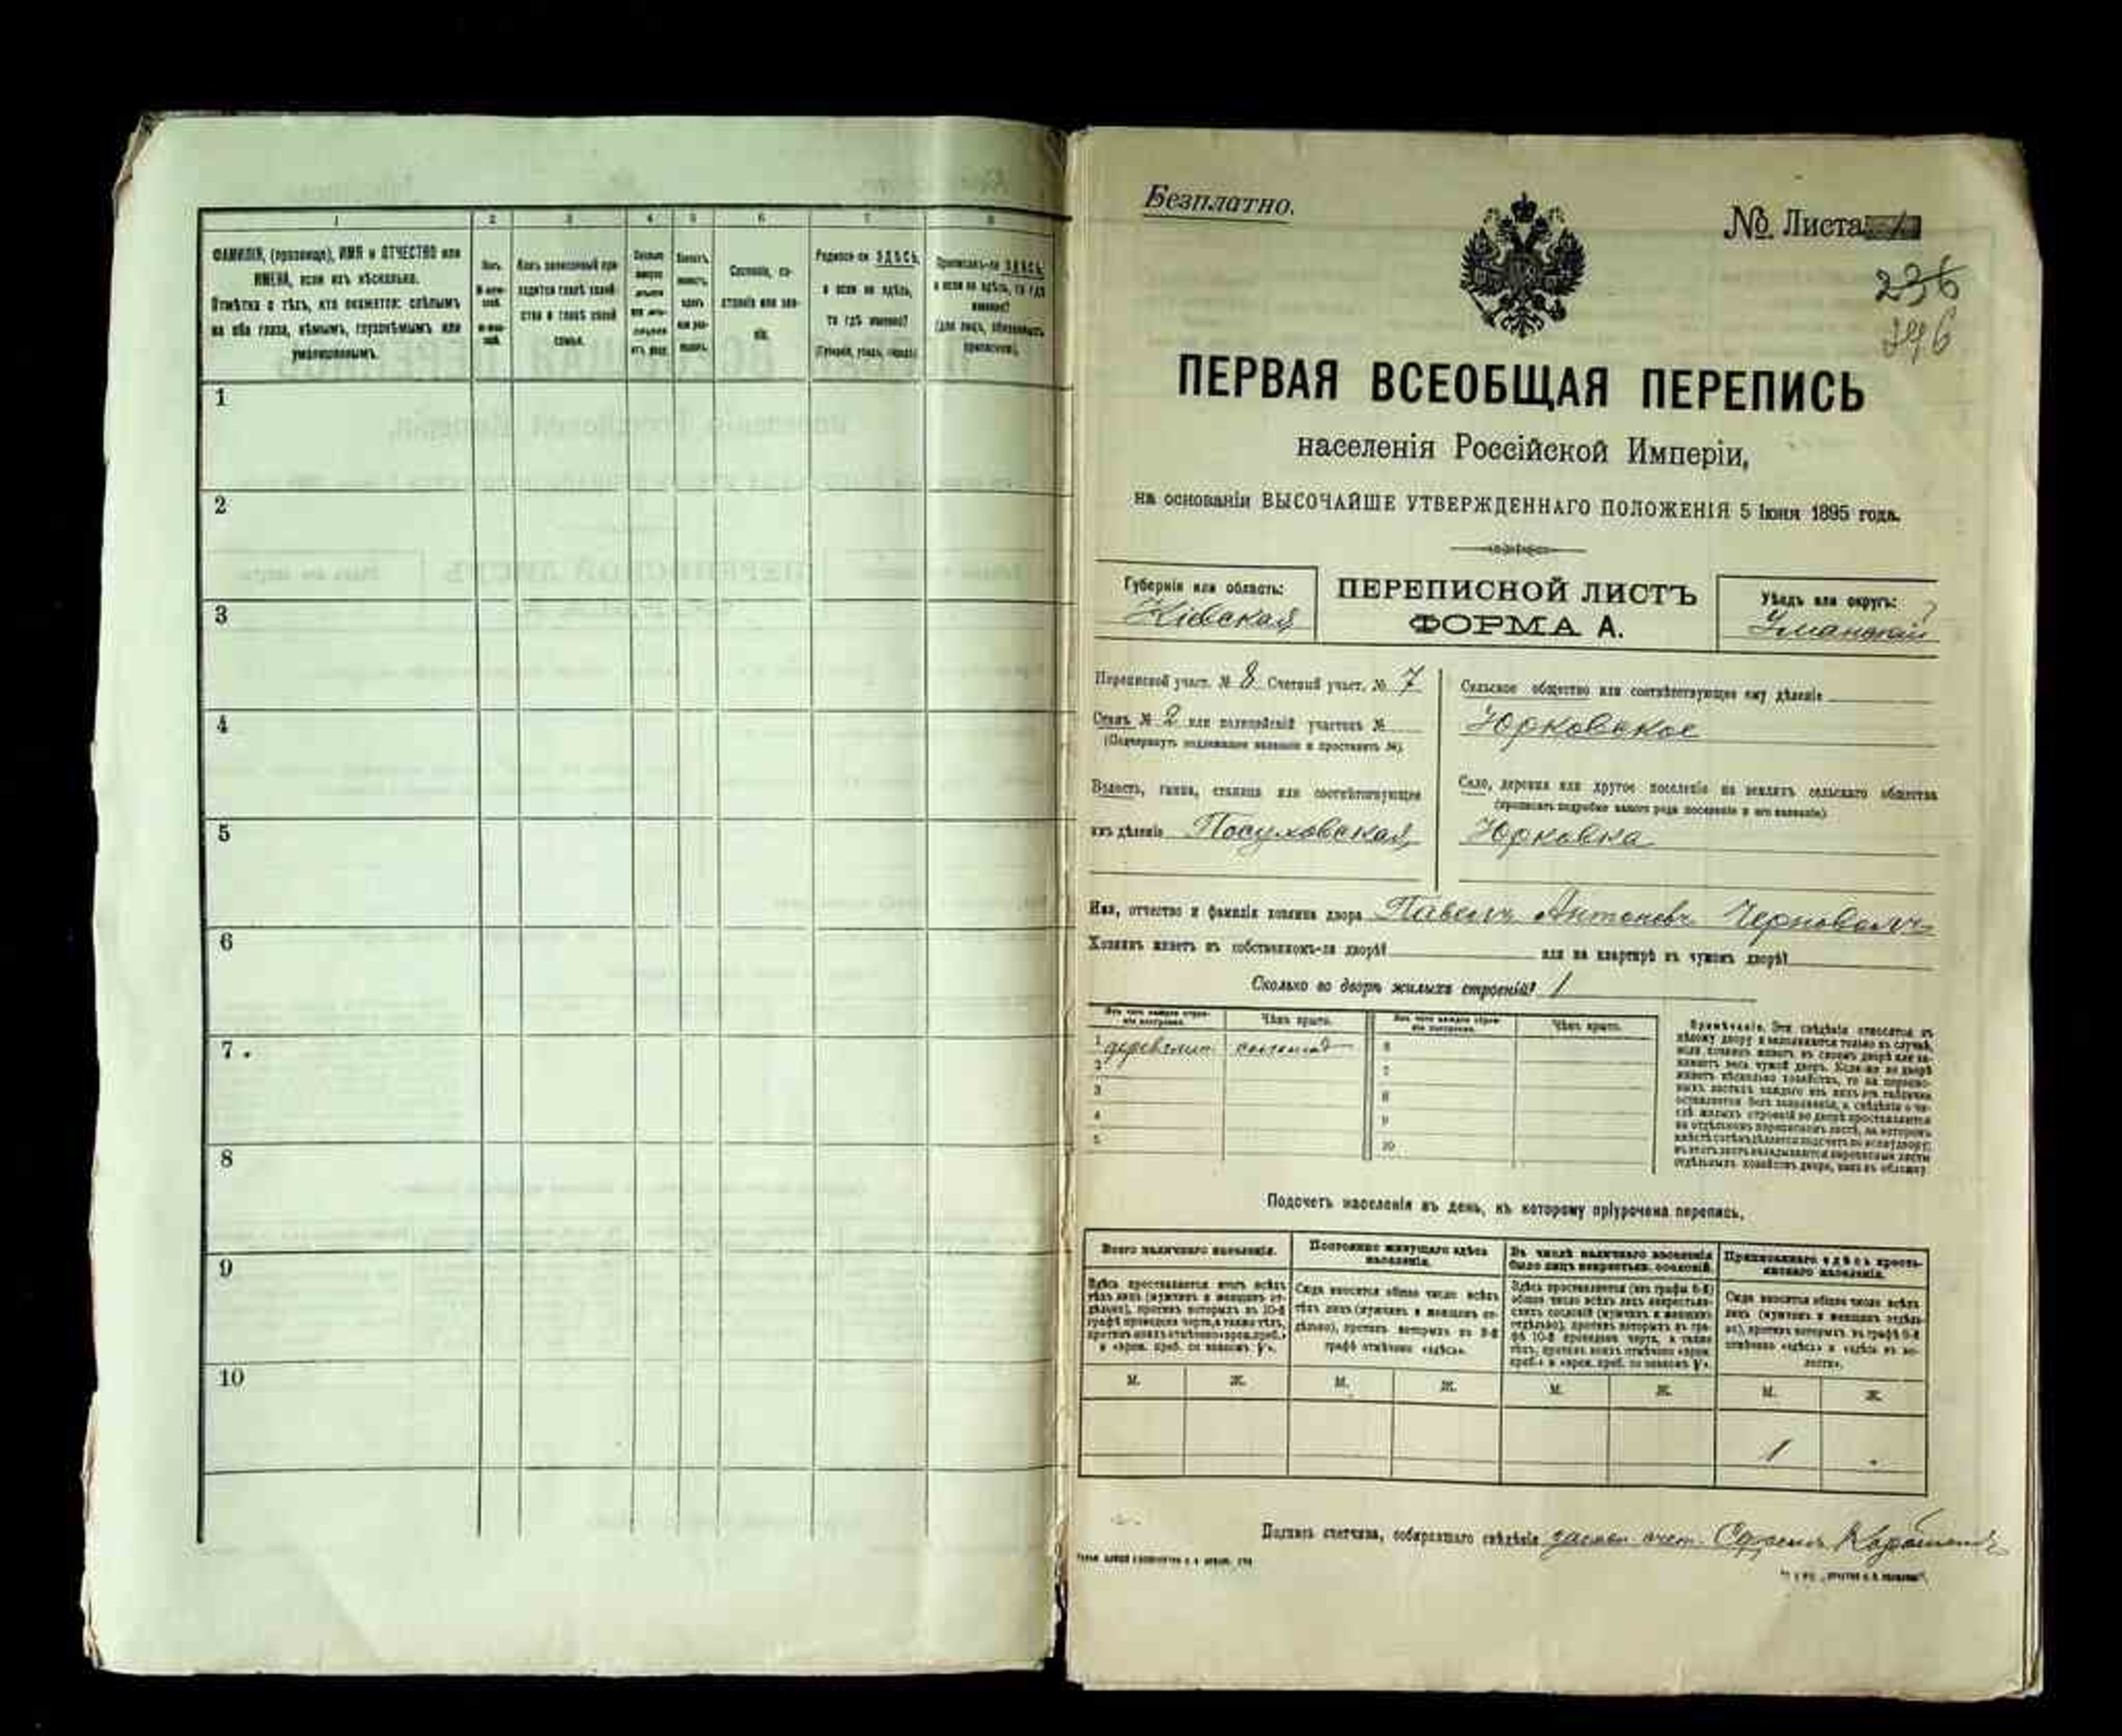 1 2 3 4 5 6 7 8
ФАМИЛІЯ, (прозвище), ИМЯ и ОТЧЕСТВО или
ИМЕНА, если ихъ нѣсколько.
Отмѣтка о тѣхъ, кто окажется: слѣпымъ
на оба глаза, нѣмымъ, глухонѣмымъ или
умалишеннымъ.
Полъ.
Сословіе, со-
стояніе или зва-
ніе.
Родился-ли ЗДѢСЬ,
а если не здѣсь,
то гдѣ именно?
(Губернія, уѣздъ, городъ)
Приписанъ-ли ЗДѢСЬ,
а если не здѣсь, то гдѣ
именно?
(для лицъ, обязанныхъ
припискою).
1
2
3
4
5
6
7
8
9
10
Безплатно.
№ Листа 1
236
ПЕРВАЯ ВСЕОБЩАЯ ПЕРЕПИСЬ
населенія Россійской Имперіи,
на основаніи ВЫСОЧАЙШЕ УТВЕРЖДЕННАГО ПОЛОЖЕНІЯ 5 Іюня 1895 года.
Губернія или область:
Кіевская
ПЕРЕПИСНОЙ ЛИСТЪ
ФОРМА А.
Уѣздъ или округъ:
Уманскій
Переписной участ. № 8 Счетный участ. № 7
Станъ № 2 или полицейскій участокъ №
(Подчеркнуть подлежащее названіе и проставить №).
Волость, гмина, станица или соотвѣтствующее
имъ дѣленіе Посуховская
Сельское общество или соотвѣтствующее ему дѣленіе
Юрковское
Село, деревня или другое поселеніе на земляхъ сельскаго общества
(прописать подробно какого рода поселеніе и его названіе)
Юрковка
Имя, отчество и фамилія хозяина двора Павелъ Антоновъ Черноволъ
Хозяинъ живетъ въ собственномъ-ли дворѣ? или на квартирѣ въ чужомъ дворѣ?
Сколько во дворѣ жилыхъ строеній? 1
Изъ чего каждое строе-
ніе построено.
Чѣмъ крыто.
Изъ чего каждое строе-
ніе построено.
Чѣмъ крыто.
1 соломой 6
2 7
3 8
4 9
5 10
Подсчетъ населенія въ день, къ которому пріурочена перепись.
Всего наличнаго населенія.
Здѣсь проставляется итогъ всѣхъ
тѣхъ лицъ (мужчинъ и женщинъ от-
дѣльно), противъ которыхъ въ 10-й
графѣ проведена черта, а также тѣхъ,
противъ коихъ отмѣчено «врем. преб.»
Постоянно живущаго здѣсь
населенія.
Сюда вносится общее число всѣхъ
тѣхъ лицъ (мужчинъ и женщинъ от-
дѣльно), противъ которыхъ въ 9-й
графѣ отмѣчено «здѣсь».
Въ числѣ наличнаго населенія
было лицъ некрестьян. сословій.
Здѣсь проставляется (изъ графы 6-й)
общее число всѣхъ лицъ некрестьян-
скихъ сословій (мужчинъ и женщинъ
отдѣльно), противъ которыхъ въ гра-
фѣ 10-й проведена черта, а также
тѣхъ, противъ коихъ отмѣчено «врем.
Приписаннаго здѣсь кресть-
янскаго населенія.
Сюда вносится общее число всѣхъ
лицъ (мужчинъ и женщинъ отдѣль-
но), противъ которыхъ въ графѣ 8-й
отмѣчено «здѣсь» и «здѣсь въ во-
лости».
М. Ж. М. Ж. М. Ж. М. Ж.
1
Подпись счетчика, собиравшаго свѣдѣнія